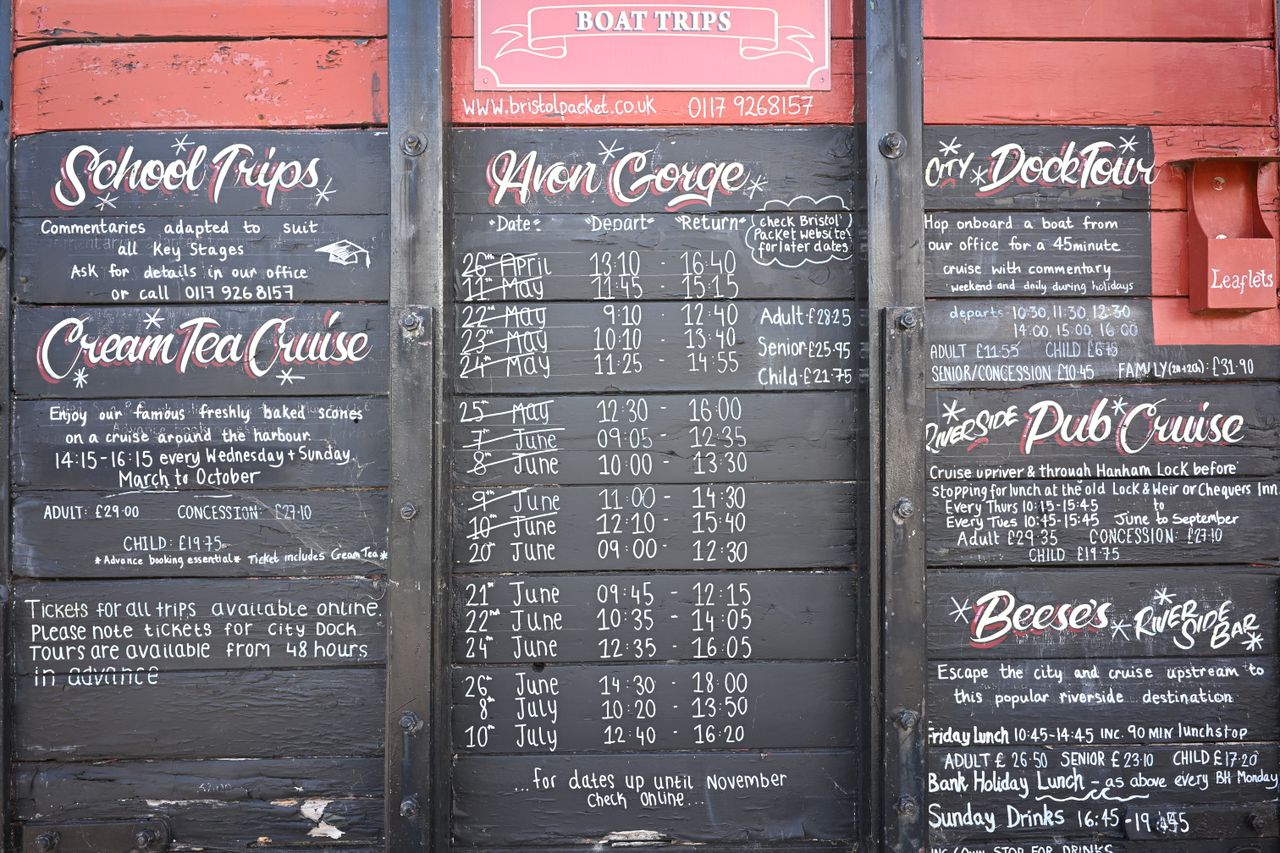 BOAT TRIPS
www.bristolpacket.co.uk 0117 9268157
School Trips
Commentaries adapted to suit
all Key Stages
Ask for details in our office
or call 0117 926 8157
Cream Tea Cruise
Enjoy our famous freshly baked scones
on a cruise around the harbour.
14:15-16:15 every Wednesday + Sunday
March to October
ADULT: £29.00 CONCESSION: £27.10
CHILD: £19.75
*Advance booking essential* Ticket includes Cream Tea*
Tickets for all trips available online.
Please note tickets for City Dock
Tours are available from 48 hours
in advance
Avon Gorge
Date: Depart Return
(check Bristol
Packet website
for later dates)
26th April 13:10 - 16:40
11th May 11:45 - 15:15
22nd May 9:10 - 12:40
23rd May 10:10 - 13:40
24th May 11:25 - 14:55
Adult £28.25
Senior £25.95
Child £21.75
25th May 12:30 - 16:00
7th June 09:05 - 12:35
8th June 10:00 - 13:30
9th June 11:00 - 14:30
10th June 12:10 - 15:40
20th June 09:00 - 12:30
21st June 09:45 - 12:15
22nd June 10:35 - 14:05
24th June 12:35 - 16:05
26th June 14:30 - 18:00
8th July 10:20 - 13:50
10th July 12:40 - 16:20
...for dates up until November
check online...
City Dock Tour
Hop onboard a boat from
our office for a 45minute
cruise with commentary
weekend and daily during holidays
departs 10:30, 11:30, 12:30
14:00, 15:00, 16:00
ADULT £11.55 CHILD £6.75
SENIOR/CONCESSION £10.45 FAMILY (2a+2ch): £31.90
Leaflets
Riverside Pub Cruise
Cruise upriver & through Hanham Lock before
stopping for lunch at the old Lock & Weir or Chequers Inn
Every Thurs 10:15-15:45 to
Every Tues 10:45-15:45 June to September
Adult £29.35 CONCESSION: £27.10
CHILD £19.75
Beese's Riverside Bar
Escape the city and cruise upstream to
this popular riverside destination
Friday Lunch 10:45-14:45 INC. 90 MIN lunchstop
ADULT £26.50 SENIOR £23.10 CHILD £17.20
Bank Holiday Lunch - as above every BH Monday
Sunday Drinks 16:45-19
STOP FOR DRINKS